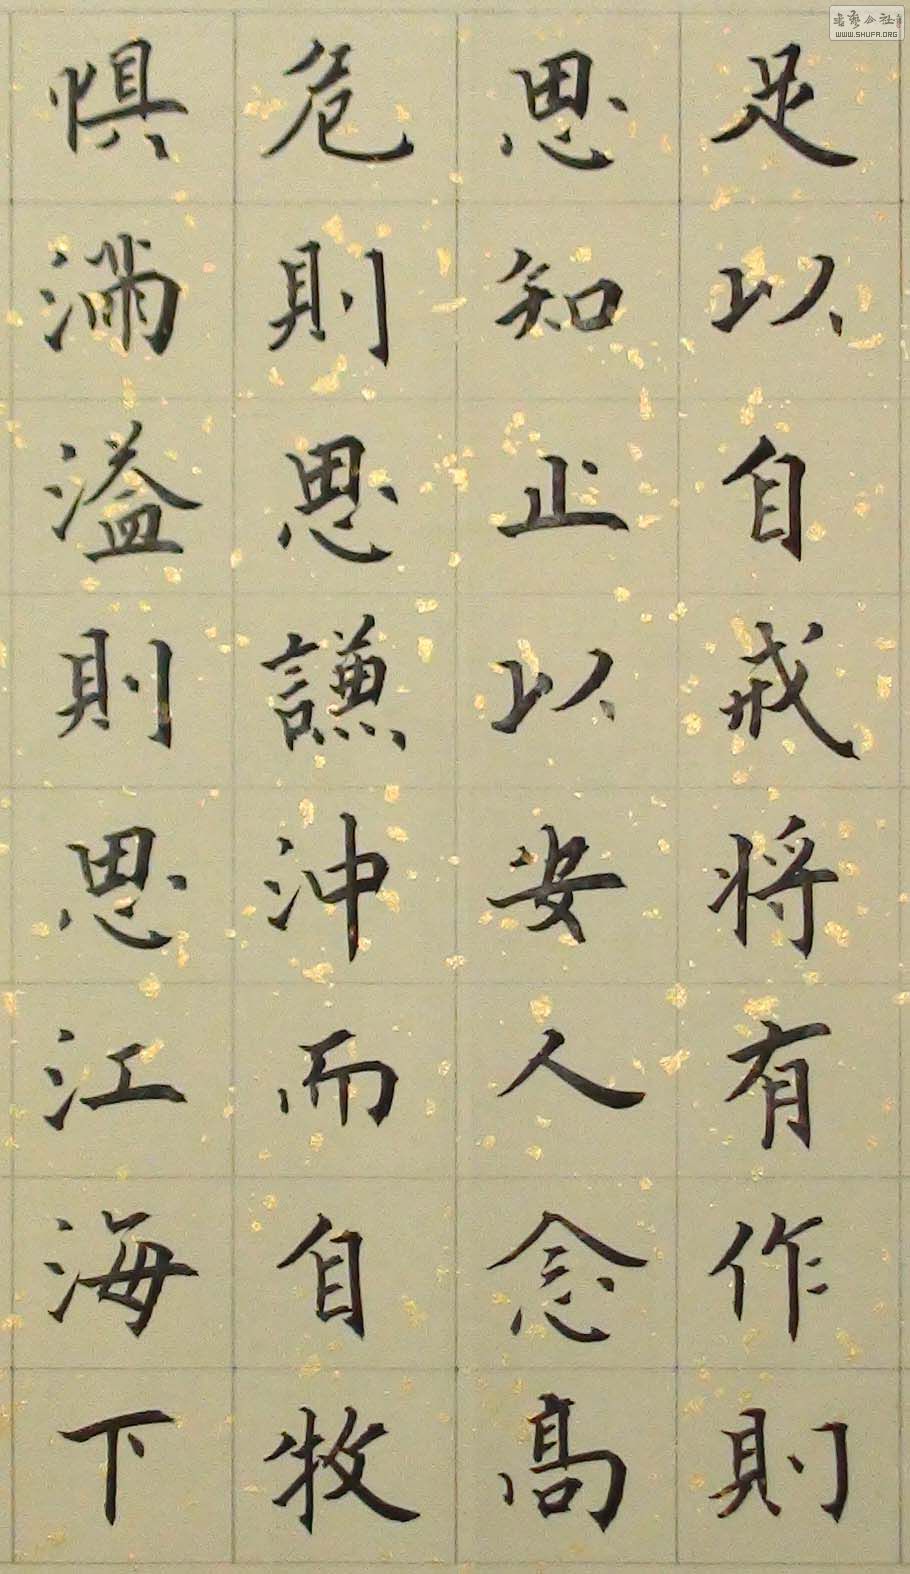 足以自戒将有作則
思知止以安人念高
危則思謙沖而自牧
惧满溢則思江海下
WWW.SHUFA.ORG